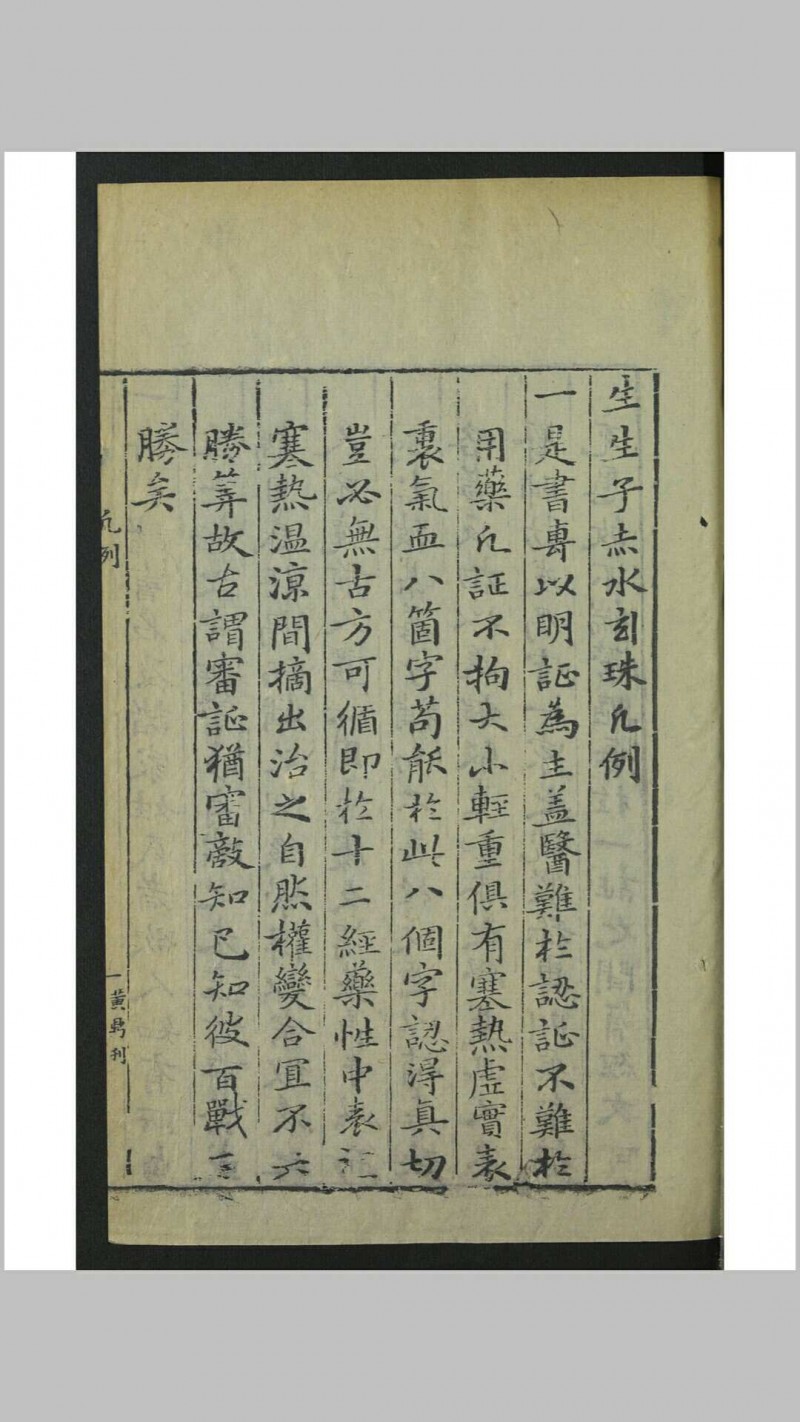 生生子赤水玄珠凡例
一是書專以明証為主蓋醫難於認証不難於
用藥凡証不拘大小輕重俱有寒熱虛實表
裏氣血八箇字苟能於此八個字認得真切
豈必無古方可循即於十二經藥性中表
寒熱温涼間摘出治之自然權變合宜不
勝筭故古謂審証猶審敵知已知彼百戰百
勝矣
凡例
一
黃鼎刊